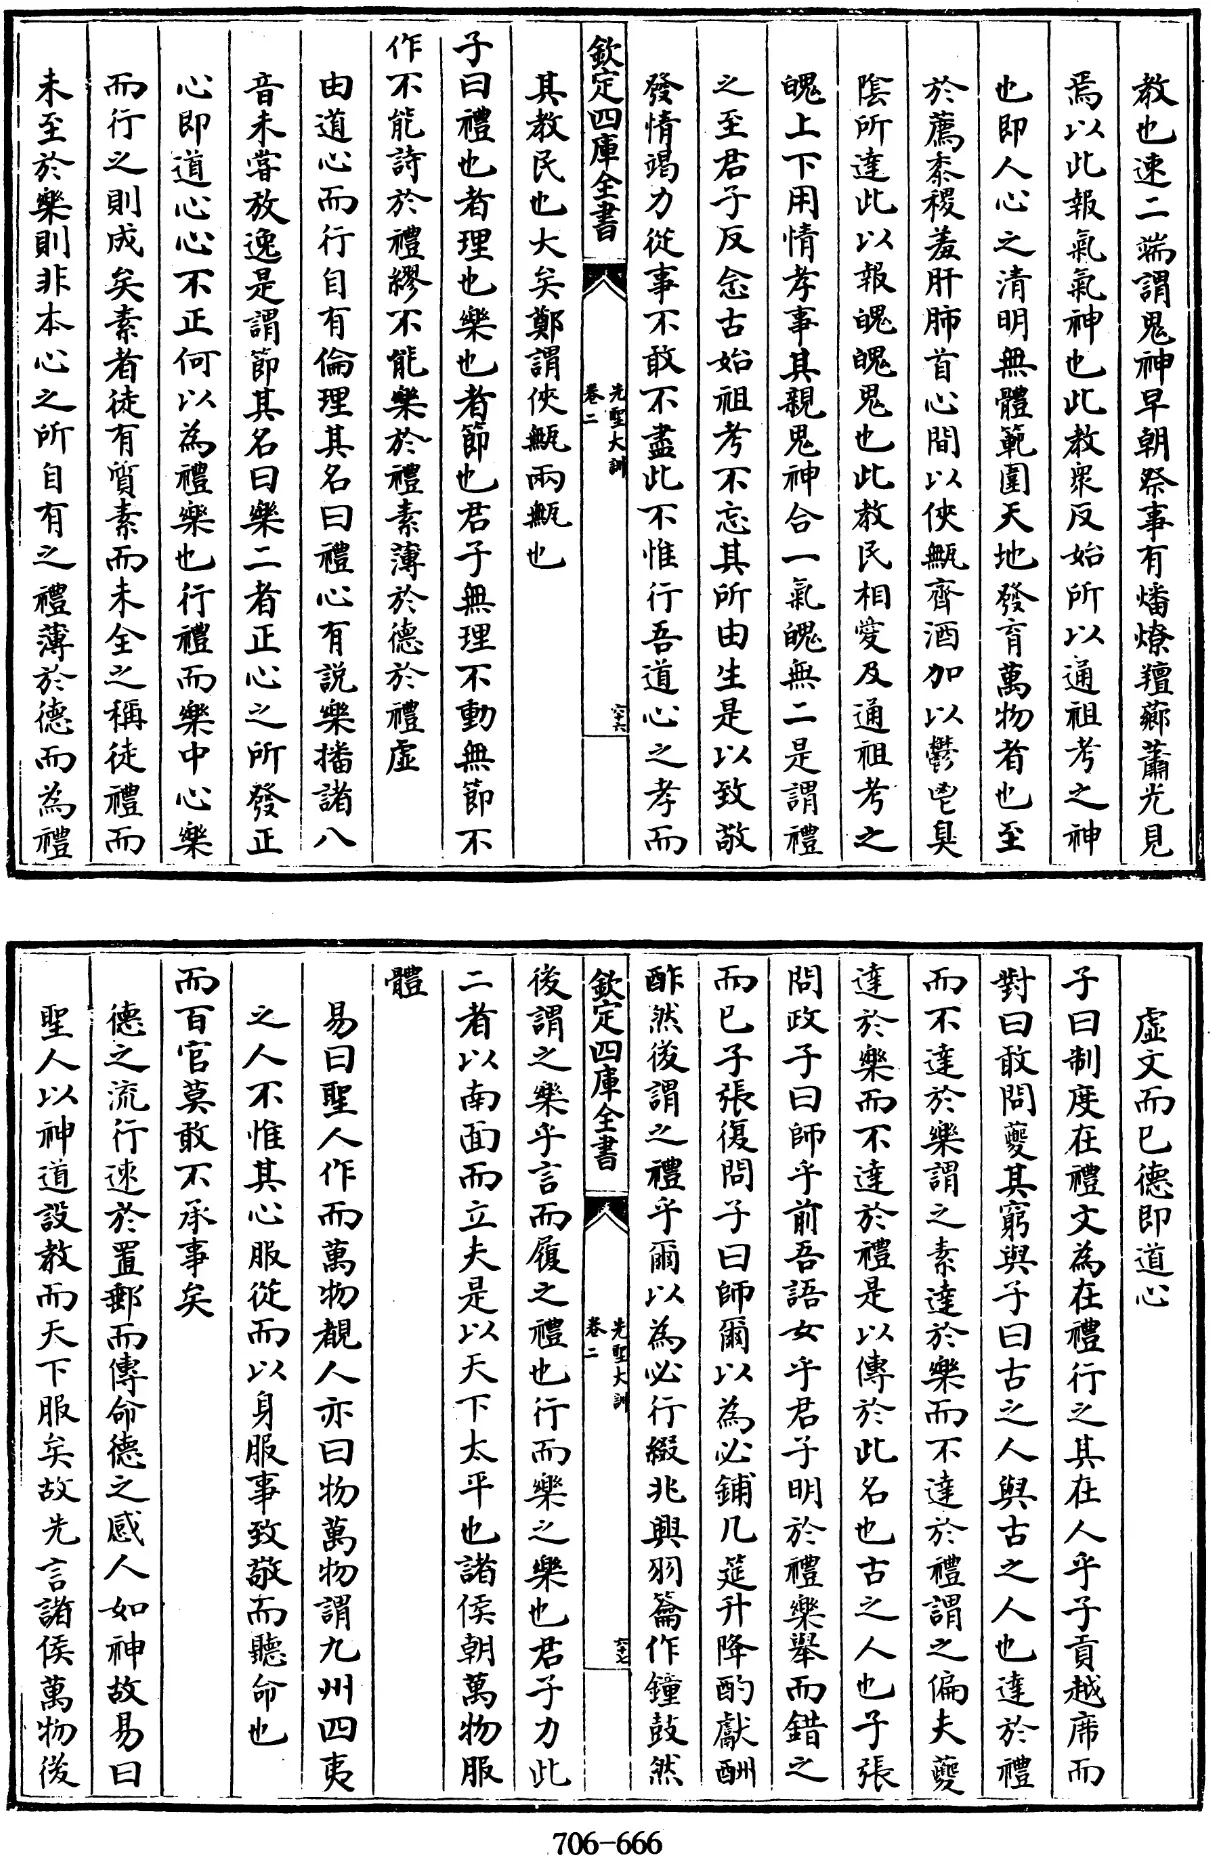 教也速二端謂鬼神早朝祭事有燔燎羶薌蕭光見
焉以此報氣氣神也此教衆反始所以通祖考之神
也即人心之清明無體範圍天地發育萬物者也至
於薦黍稷羞肝肺首心間以俠甒齊酒加以鬱鬯臭
陰所達此以報魄魄鬼也此教民相愛及通祖考之
魄上下用情孝事其親鬼神合一氣魄無二是謂禮
之至君子反念古始祖考不忘其所由生是以致敬
發情竭力從事不敢不盡此不惟行吾道心之孝而
欽定四庫全書
先聖大訓
卷二
六十六
其教民也大矣鄭謂俠甒兩甒也
子曰禮也者理也樂也者節也君子無理不動無節不
作不能詩於禮繆不能樂於禮素薄於德於禮虛
由道心而行自有倫理其名曰禮心有説樂播諸八
音未嘗放逸是謂節其名曰樂二者正心之所發正
心即道心心不正何以為禮樂也行禮而樂中心樂
而行之則成矣素者徒有質素而未全之稱徒禮而
未至於樂則非本心之所自有之禮薄於德而為禮
虛文而已德即道心
子曰制度在禮文為在禮行之其在人乎子貢越席而
對曰敢問夔其窮與子曰古之人與古之人也達於禮
而不達於樂謂之素達於樂而不達於禮謂之偏夫夔
達於樂而不達於禮是以傳於此名也古之人也子張
問政子曰師乎前吾語女乎君子明於禮樂舉而錯之
而已子張復問子曰師爾以為必鋪几筵升降酌獻酬
酢然後謂之禮乎爾以為必行綴兆興羽籥作鐘鼓然
欽定四庫全書
先聖大訓
卷二
六十七
後謂之樂乎言而履之禮也行而樂之樂也君子力此
二者以南面而立夫是以天下太平也諸侯朝萬物服
體
易曰聖人作而萬物覩人亦曰物萬物謂九州四夷
之人不惟其心服從而以身服事致敬而聽命也
而百官莫敢不承事矣
德之流行速於置郵而傳命德之感人如神故易曰
聖人以神道設教而天下服矣故先言諸侯萬物後
706-666